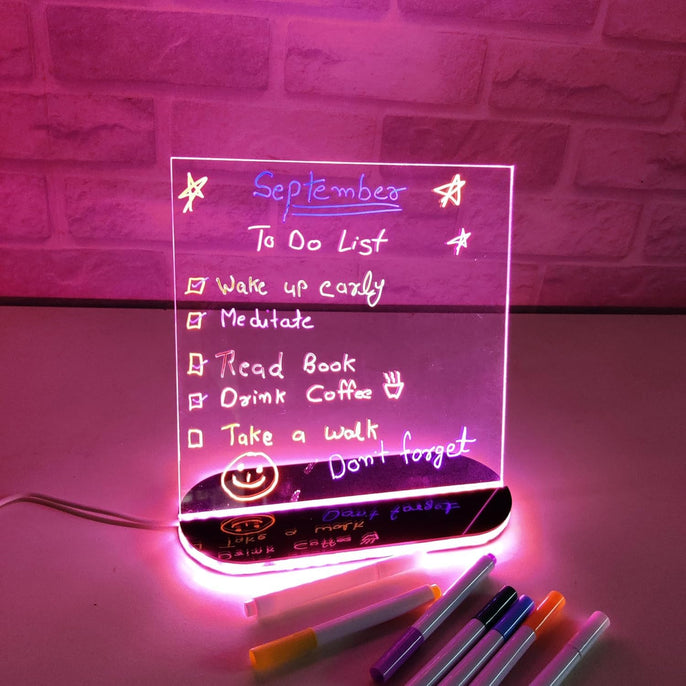 September
To Do List
Wake up early
Meditate
Read Book
Drink Coffee
Take a walk
Don't forget